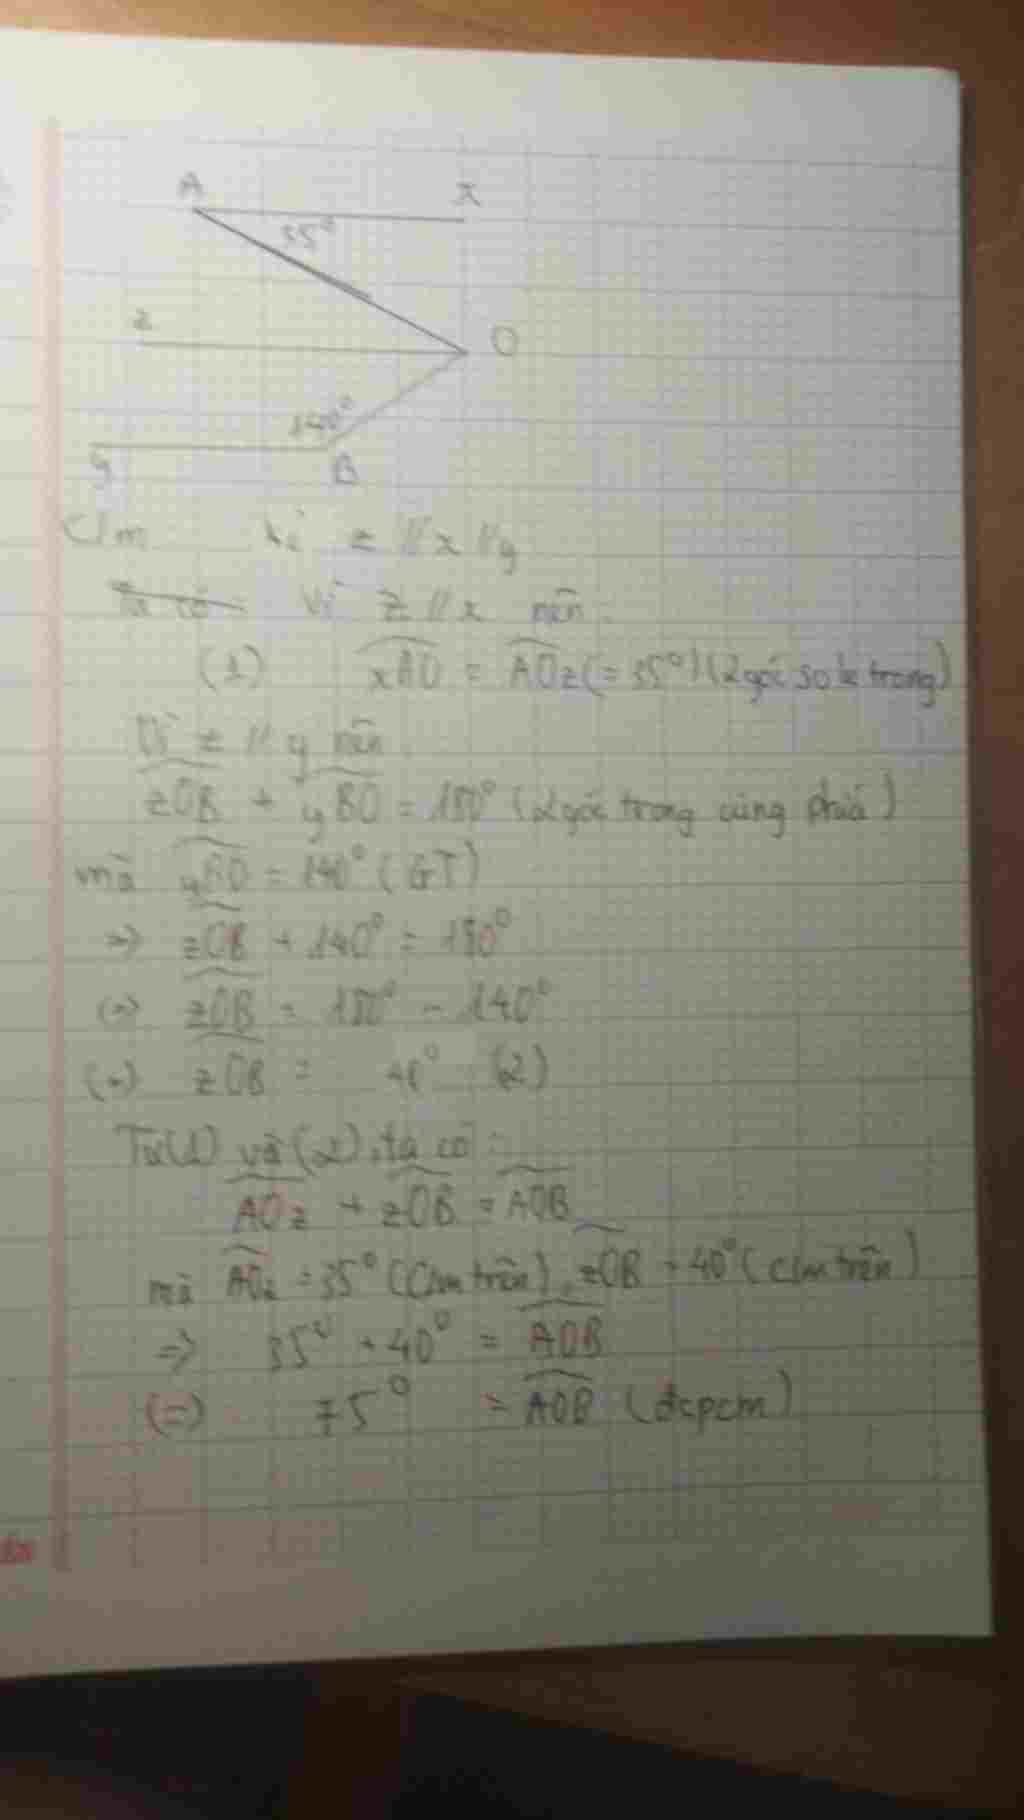 A x
35°
z O
140°
y B
C/m z // x // y
Vì z // x nên:
(1) xAO = AOz (= 35°) (2 góc so le trong)
Vì z // y nên:
zOB + yBO = 180° (2 góc trong cùng phía)
mà yBO = 140° (GT)
=> zOB + 140° = 180°
(=) zOB = 180° - 140°
(=) zOB = 40° (2)
Từ (1) và (2), ta có:
AOz + zOB = AOB
mà AOz = 35° (C/m trên), zOB = 40° (c/m trên)
=> 35° + 40° = AOB
(=) 75° = AOB (đcpcm)